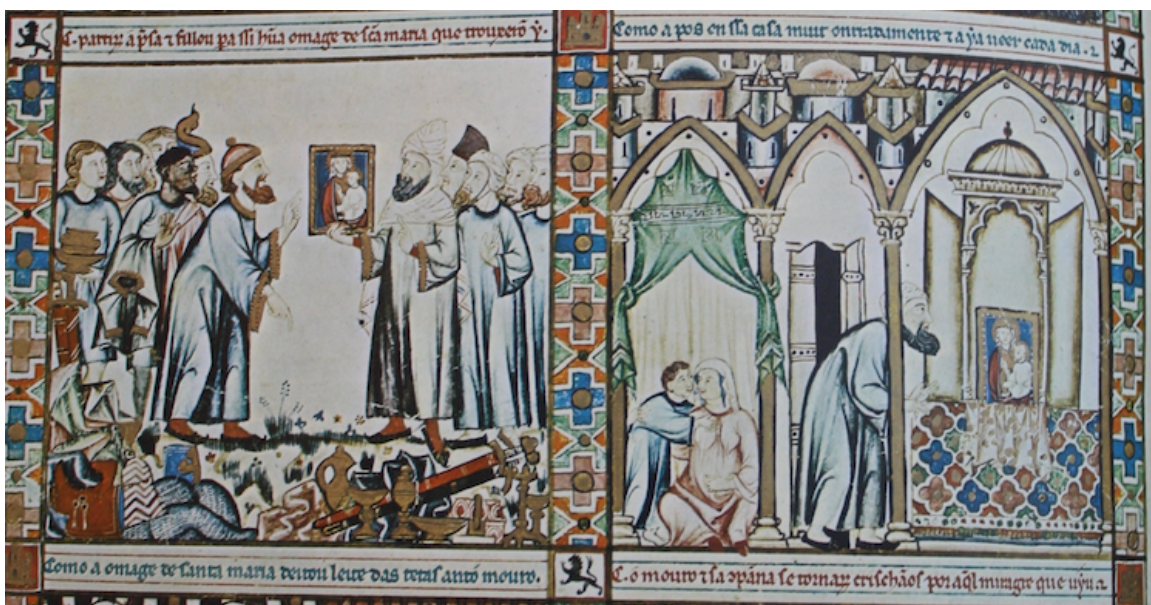 C. partirõ a p̃sa ⁊ fillou pa ssi hũa omage de sc̃a maria que trouverõ y.
Como a pos en ssa casa muit onrradamente ⁊ a ya ueer cada dia. ⁊
Como a omage de santa maria deitou leite das tetas anto mouro.
C. o mouro ⁊ sa cõpãna se tornarõ crischãos por aq̃l miragre que uyu ⁊